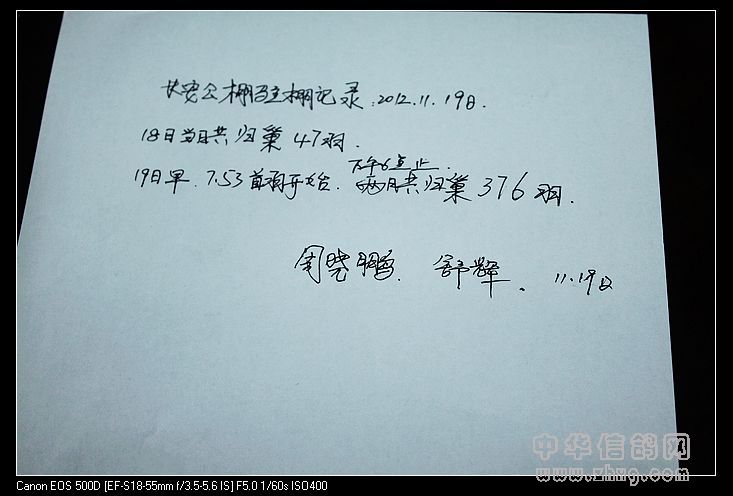 长安公棚驻棚记录.2012.11.19日.
18日当日共归巢47羽.
下午6点止.
19日早.7.53首羽开始.两日共归巢376羽.
周晓鹏.舒辉.11.19日
中华信鸽网
www.zhxg.com
Canon EOS 500D [EF-S18-55mm f/3.5-5.6 IS] F5.0 1/60s ISO400